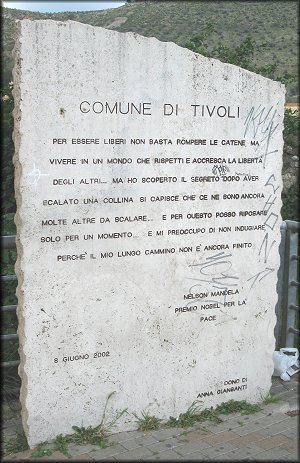 COMUNE DI TIVOLI
PER ESSERE LIBERI NON BASTA ROMPERE LE CATENE, MA
VIVERE IN UN MONDO CHE RISPETTI E ACCRESCA LA LIBERTÀ
DEGLI ALTRI... MA HO SCOPERTO IL SEGRETO: DOPO AVER
SCALATO UNA COLLINA SI CAPISCE CHE CE NE SONO ANCORA
MOLTE ALTRE DA SCALARE... E PER QUESTO POSSO RIPOSARE
SOLO PER UN MOMENTO... E MI PREOCCUPO DI NON INDUGIARE
PERCHÈ IL MIO LUNGO CAMMINO NON È ANCORA FINITO
NELSON MANDELA
PREMIO NOBEL PER LA
PACE
8 GIUGNO 2002
DONO DI
ANNA GIANSANTI